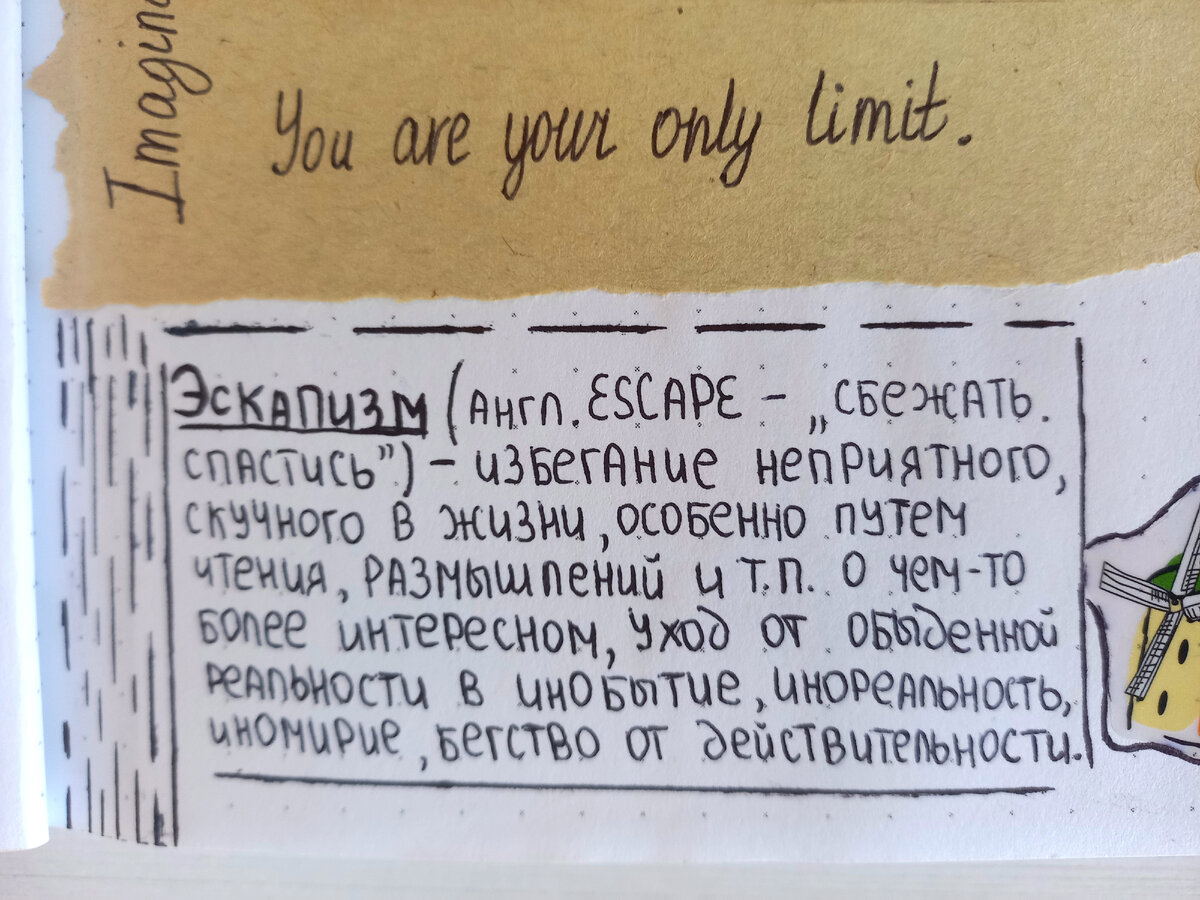 You are your only limit.
Эскапизм (англ. ESCAPE – „сбежать.
спастись”) – избегание неприятного,
скучного в жизни, особенно путем
чтения, размышлений и т.п. о чем-то
более интересном, уход от обыденной
реальности в инобытие, инореальность,
иномирие, бегство от действительности.